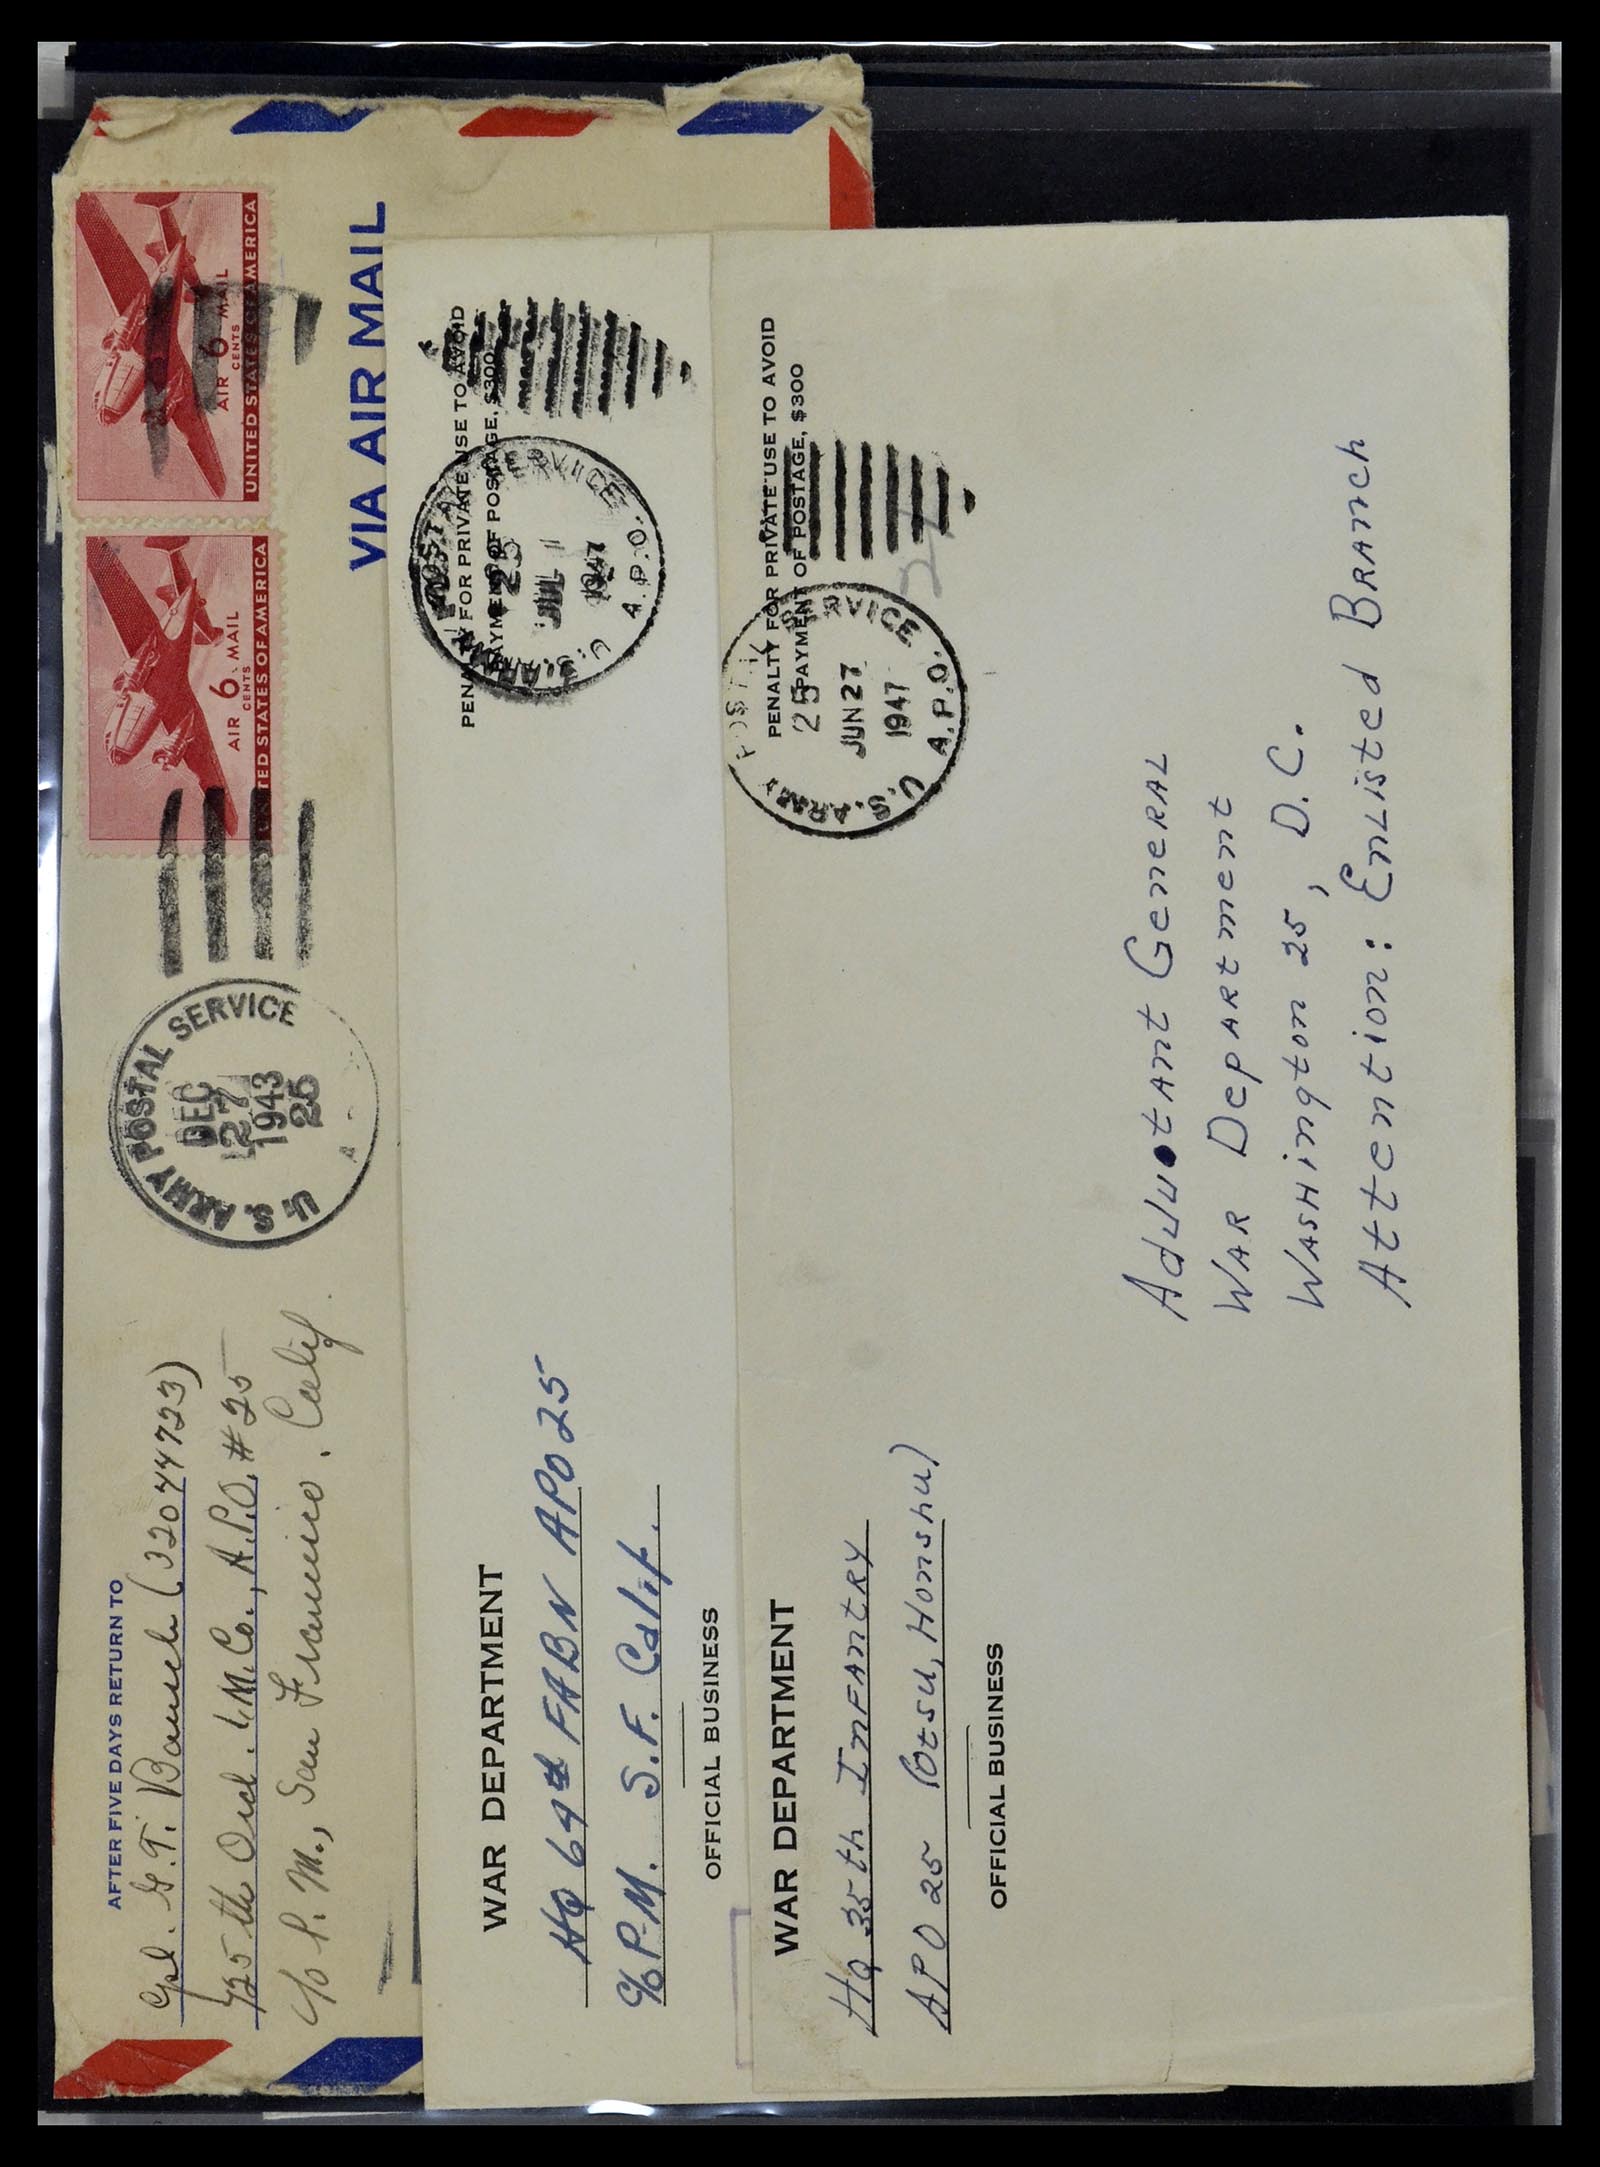 AFTER FIVE DAYS RETURN TO
Cpl. G. T. (32044723)
725th Ord. L.M. Co., A.P.O. #25
c/o P. M., San Francisco, Calif.
U.S. ARMY POSTAL SERVICE
DEC
27
1943
25
A
AIR 6 MAIL
CENTS
TED STATES OF AMERICA
AIR 6 MAIL
CENTS
UNITED STATES OF AMERICA
VIA AIR MAIL
WAR DEPARTMENT
HQ 69th FABN APO 25
c/o P.M. S.F. Calif.
OFFICIAL BUSINESS
PENALTY FOR PRIVATE USE TO AVOID
PAYMENT OF POSTAGE, $300
SERVICE
25
JUL 11
1947
U.S. A.P.O.
WAR DEPARTMENT
HQ 35th InFAntRY
APO 25 (Otsu, Honshu)
OFFICIAL BUSINESS
PENALTY FOR PRIVATE USE TO AVOID
PAYMENT OF POSTAGE, $300
U.S. ARMY POSTAL SERVICE
25
JUN 27
1947
A.P.O.
24
AdJutAnt GeneRAL
WAR DepARtment
WAsHington 25, D.C.
Attention: EnListed BRAnch